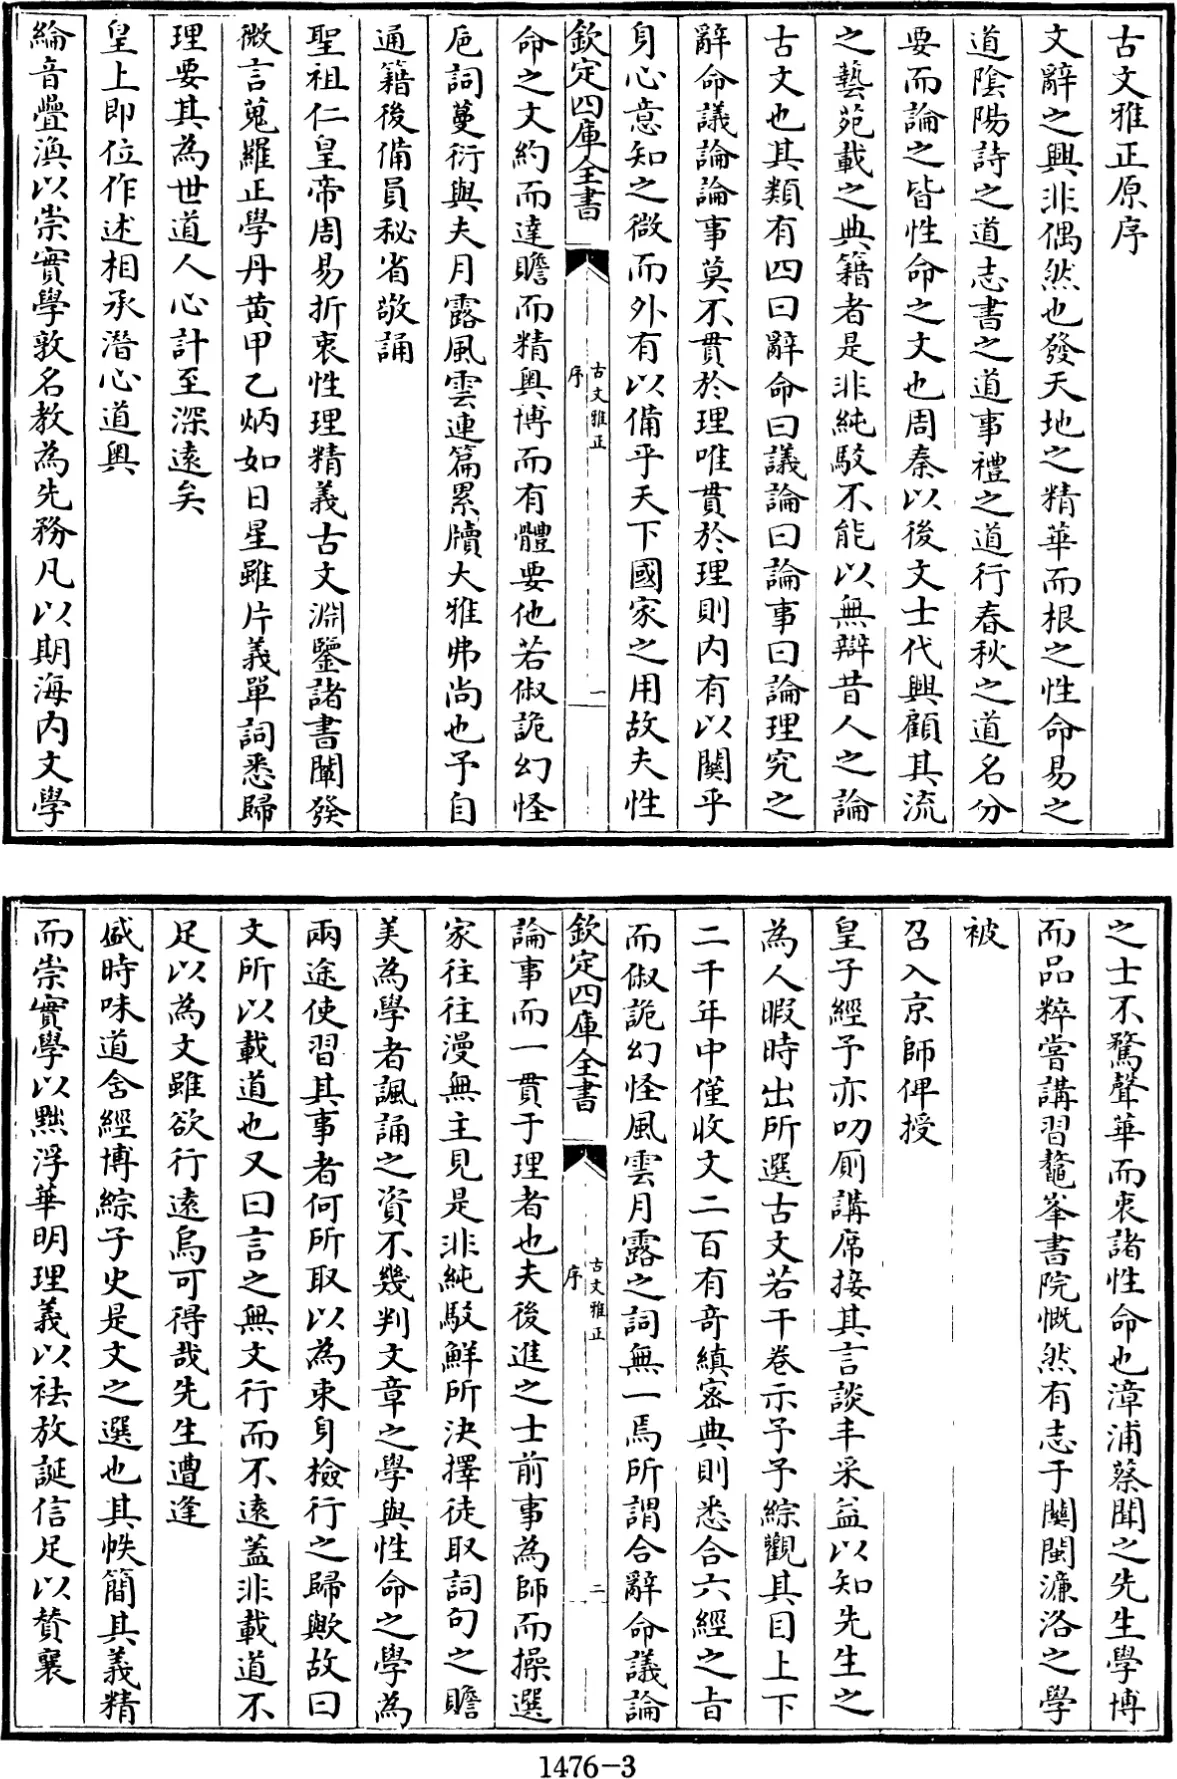 古文雅正原序
文辭之興非偶然也發天地之精華而根之性命易之
道陰陽詩之道志書之道事禮之道行春秋之道名分
要而論之皆性命之文也周秦以後文士代興顧其流
之藝苑載之典籍者是非純駮不能以無辯昔人之論
古文也其類有四曰辭命曰議論曰論事曰論理究之
辭命議論論事莫不貫於理唯貫於理則内有以關乎
身心意知之微而外有以備乎天下國家之用故夫性
欽定四庫全書
古文雅正
序
一
命之文約而達贍而精奥博而有體要他若俶詭幻怪
巵詞蔓衍與夫月露風雲連篇累牘大雅弗尚也予自
通籍後備員秘省敬誦
聖祖仁皇帝周易折衷性理精義古文淵鑒諸書闡發
微言蒐羅正學丹黄甲乙炳如日星雖片義單詞悉歸
理要其為世道人心計至深遠矣
皇上即位作述相承潛心道奥
綸音疊渙以崇實學敦名教為先務凡以期海内文學
之士不騖聲華而衷諸性命也漳浦蔡聞之先生學博
而品粹嘗講習鼇峯書院慨然有志于關閩濂洛之學
被
召入京師俾授
皇子經予亦叨厠講席接其言談丰采益以知先生之
為人暇時出所選古文若干卷示予予綜觀其目上下
二千年中僅收文二百有奇縝密典則悉合六經之㫖
而俶詭幻怪風雲月露之詞無一焉所謂合辭命議論
欽定四庫全書
古文雅正
序
二
論事而一貫于理者也夫後進之士前事為師而操選
家往往漫無主見是非純駮鮮所決擇徒取詞句之贍
美為學者諷誦之資不幾判文章之學與性命之學為
兩途使習其事者何所取以為束身檢行之歸歟故曰
文所以載道也又曰言之無文行而不遠蓋非載道不
足以為文雖欲行遠烏可得哉先生遭逢
盛時味道含經博綜子史是文之選也其帙簡其義精
而崇實學以黜浮華明理義以祛放誕信足以賛襄
1476-3